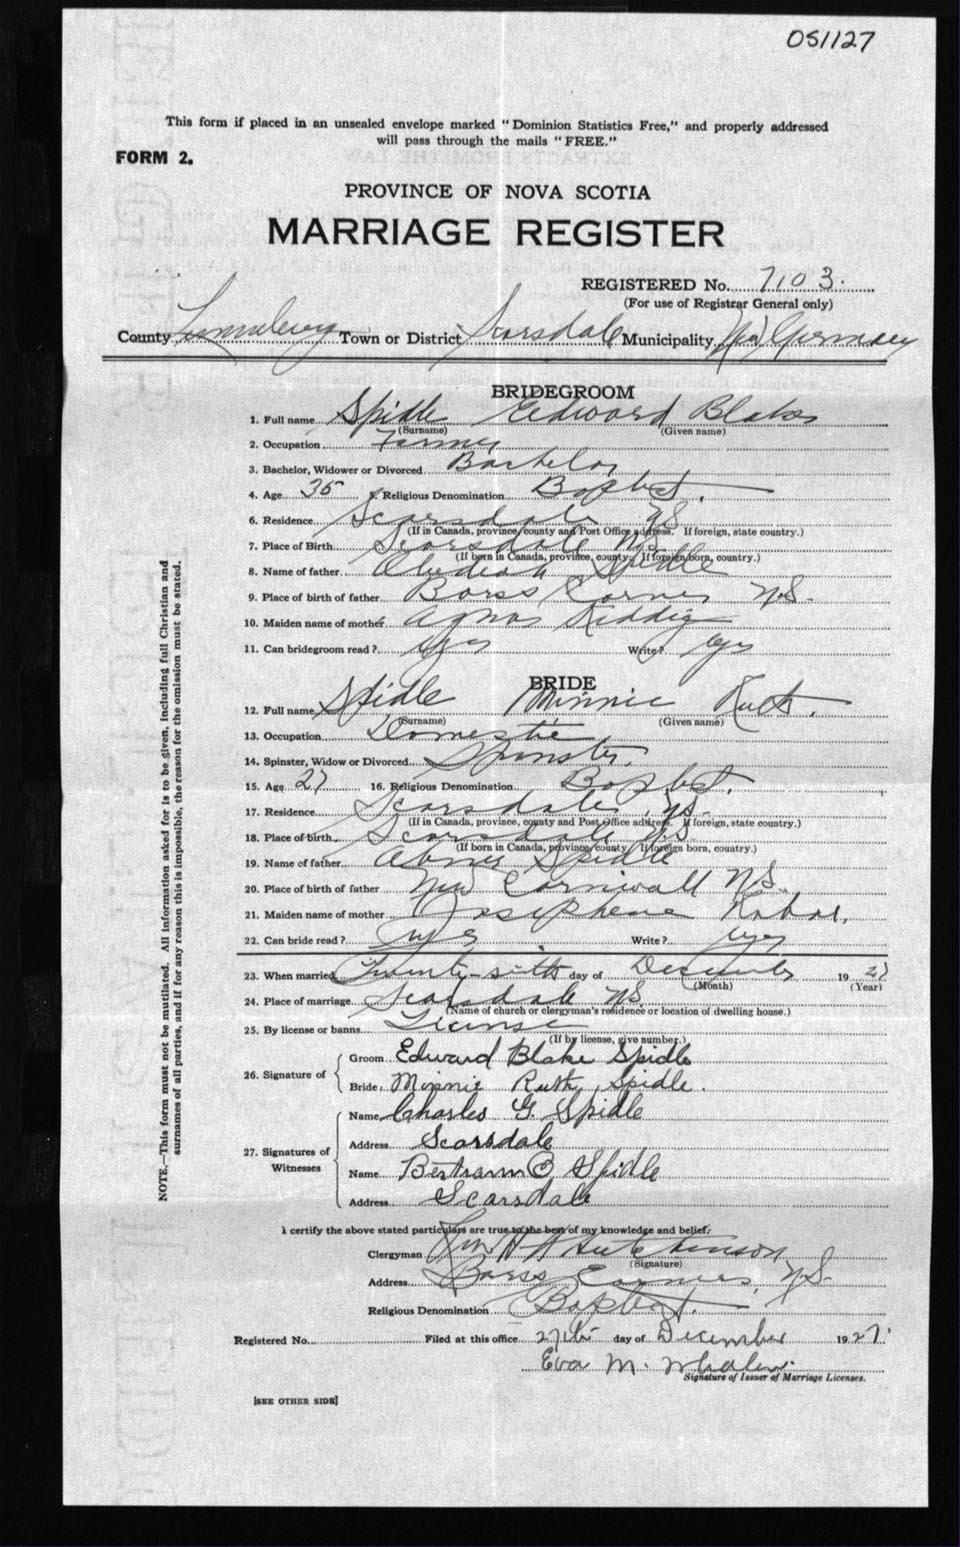 051127
This form if placed in an unsealed envelope marked "Dominion Statistics Free," and properly addressed
will pass through the mails "FREE."
FORM 2.
PROVINCE OF NOVA SCOTIA
MARRIAGE REGISTER
REGISTERED No. 7103.
(For use of Registrar General only)
County Lunenburg Town or District Scarsdale Municipality New Germany
BRIDEGROOM
1. Full name Spidle Edward Blake
(Surname) (Given name)
2. Occupation Farmer
3. Bachelor, Widower or Divorced Bachelor
4. Age 35 5. Religious Denomination Baptist.
6. Residence Scarsdale NS
(If in Canada, province, county and Post Office address. If foreign, state country.)
7. Place of Birth Scarsdale NS
(If born in Canada, province, county. If foreign born, country.)
8. Name of father Obediah Spidle
9. Place of birth of father Barss Corner N.S.
10. Maiden name of mother Agnes
11. Can bridegroom read? yes Write? yes
BRIDE
12. Full name Spidle Minnie Ruth.
(Surname) (Given name)
13. Occupation Domestic
14. Spinster, Widow or Divorced Spinster.
15. Age 27 16. Religious Denomination Baptist.
17. Residence Scarsdale, NS.
(If in Canada, province, county and Post Office address. If foreign, state country.)
18. Place of birth Scarsdale NS
(If born in Canada, province, county. If foreign born, country.)
19. Name of father Abner Spidle
20. Place of birth of father New Cornwall NS.
21. Maiden name of mother
22. Can bride read? yes Write? yes
23. When married Twenty-sixth day of December 1927
(Month) (Year)
24. Place of marriage Scarsdale NS
(Name of church or clergyman's residence or location of dwelling house.)
25. By license or banns License
(If by license, give number.)
26. Signature of Groom Edward Blake Spidle
Bride Minnie Ruth Spidle.
27. Signatures of Witnesses Name Charles G Spidle
Address Scarsdale
Name Bertram O Spidle
Address Scarsdale
I certify the above stated particulars are true to the best of my knowledge and belief.
Clergyman Hutchinson
(Signature)
Address Barss Corner, N.S.
Religious Denomination Baptist.
Registered No. Filed at this office 27th day of December 1927
Eva M. Whalen.
Signature of Issuer of Marriage Licenses.
[SEE OTHER SIDE]
NOTE.—This form must not be mutilated. All information asked for is to be given, including full Christian and
surnames of all parties, and if for any reason this is impossible, the reason for the omission must be stated.